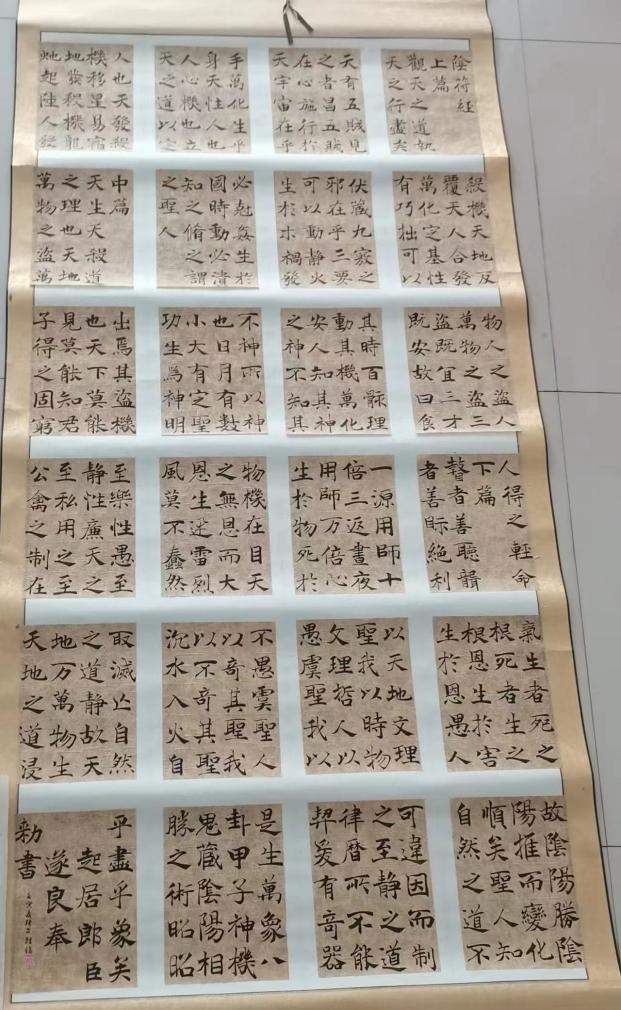 陰符經
上篇
觀天之道執
天之行盡矣
天有五賊見
之者昌五賊
在心施行於
天宇宙在乎
手萬化生乎
身天性人也
人心機也立
天之道以定
人也天發殺
機移星易宿
地發殺機龍
虵起陸人發
殺機天地反
覆天人合發
萬化定基性
有巧拙可以
伏藏九竅之
邪在乎三要
可以動靜火
生於木禍發
必尅姦生於
國時動必潰
知之脩之謂
之聖人
中篇
天生天殺道
之理也天地
萬物之盜萬
物人之盜人
萬物之盜三
盜既宜三才
既安故曰食
其時百骸理
動其機萬化
安人知其神
之神不知其
不神而以神
也日月有數
小大有定聖
功生焉神明
出焉其盜機
也天下莫能
見莫能知君
子得之固窮
人得之輕命
下篇
瞽者善聽聾
者善眎絕利
一源用師十
倍三返晝夜
用師万倍心
生於物死於
物機在目天
之無恩而大
恩生迷雷烈
風莫不蠢然
至樂性愚至
靜性廉天之
至私用之至
公禽之制在
氣生者死之
根死者生之
根恩生於害
生於恩愚人
以天地文理
聖我以時物
文理哲人以
愚虞聖我以
不愚虞聖人
以奇其聖我
以不奇其聖
沉水入火自
取滅亡自然
之道静故天
地万萬物生
天地之道浸
故陰陽勝陰
陽推而變化
順矣聖人知
自然之道不
可違因而制
之至静之道
律暦所不能
契爰有奇器
是生萬象八
卦甲子神機
鬼藏陰陽相
勝之術昭昭
乎盡乎象矣
起居郎臣
遂良奉
勑書